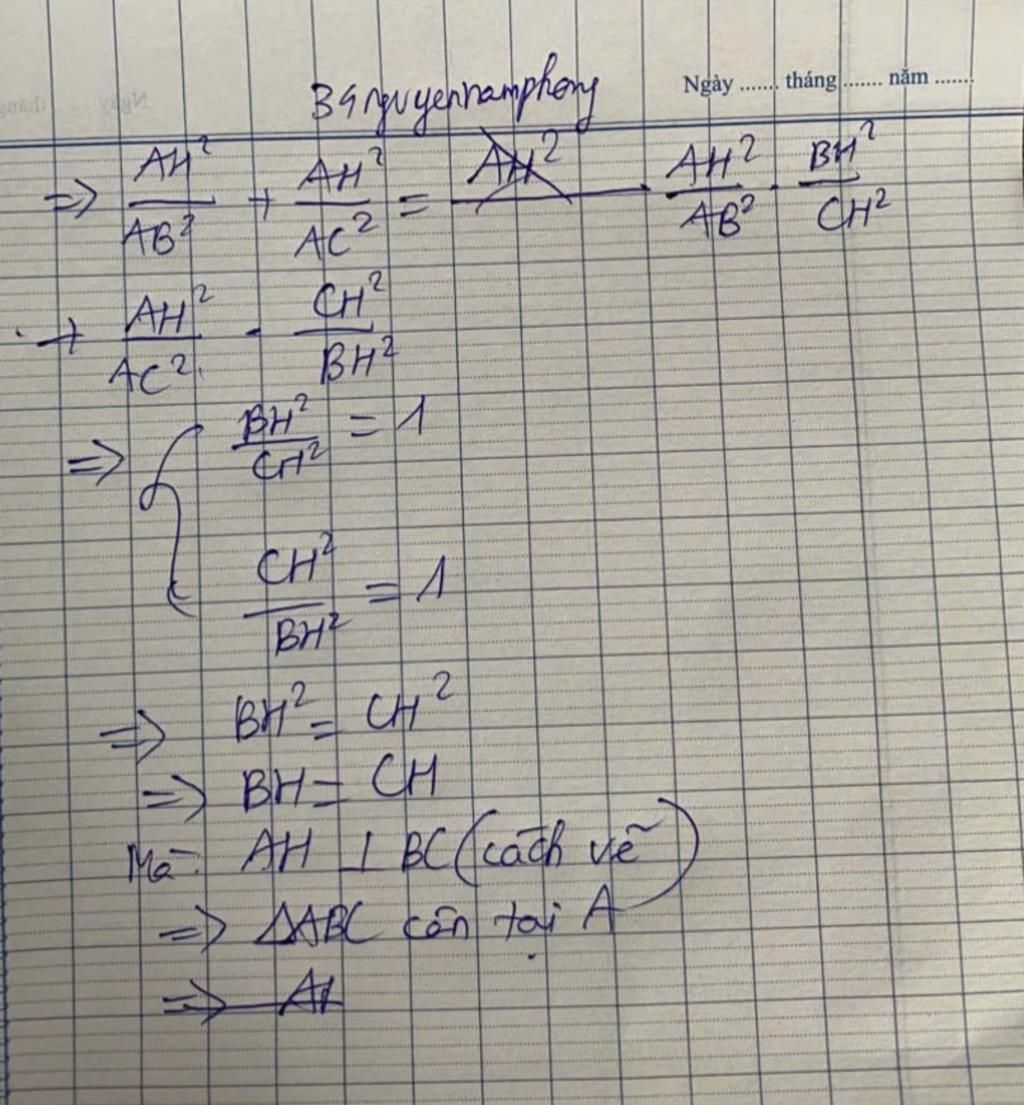 B4 nguyennamphong
Ngày ....... tháng ....... năm .......
⇒ AH²/AB² + AH²/AC² = AH²/AB² · BH²/CH²
+ AH²/AC² · CH²/BH²
⇒ { BH²/CH² = 1
CH²/BH² = 1
⇒ BH² = CH²
⇒ BH = CH
Mà: AH ⊥ BC (cách vẽ)
⇒ ΔABC cân tại A